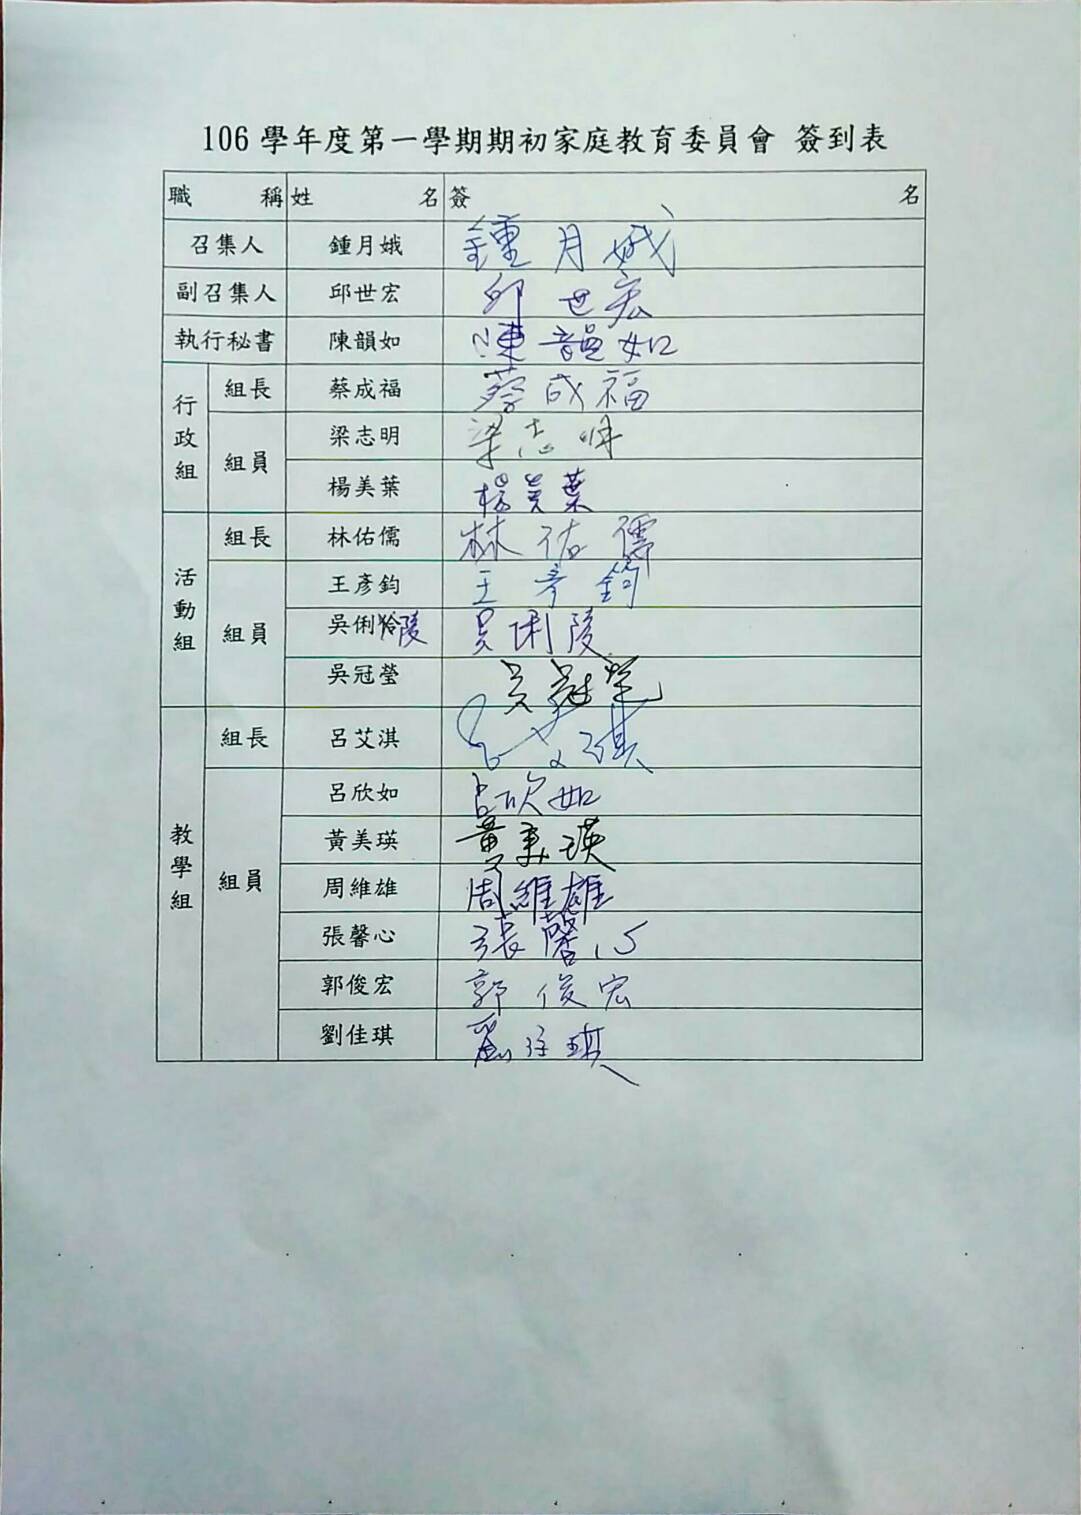 106 學年度第一學期期初家庭教育委員會 簽到表
職稱 姓名 簽名
召集人 鍾月娥 鍾月娥
副召集人 邱世宏 邱世宏
執行秘書 陳韻如 陳韻如
行政組 組長 蔡成福 蔡成福
組員 梁志明 梁志明
楊美葉 楊美葉
活動組 組長 林佑儒 林佑儒
組員 王彥鈞 王彥鈞
吳俐陵 吳俐陵
吳冠瑩 吳冠瑩
教學組 組長 呂艾淇 呂艾淇
組員 呂欣如 呂欣如
黃美瑛 黃美瑛
周維雄 周維雄
張馨心 張馨心
郭俊宏 郭俊宏
劉佳琪 劉佳琪